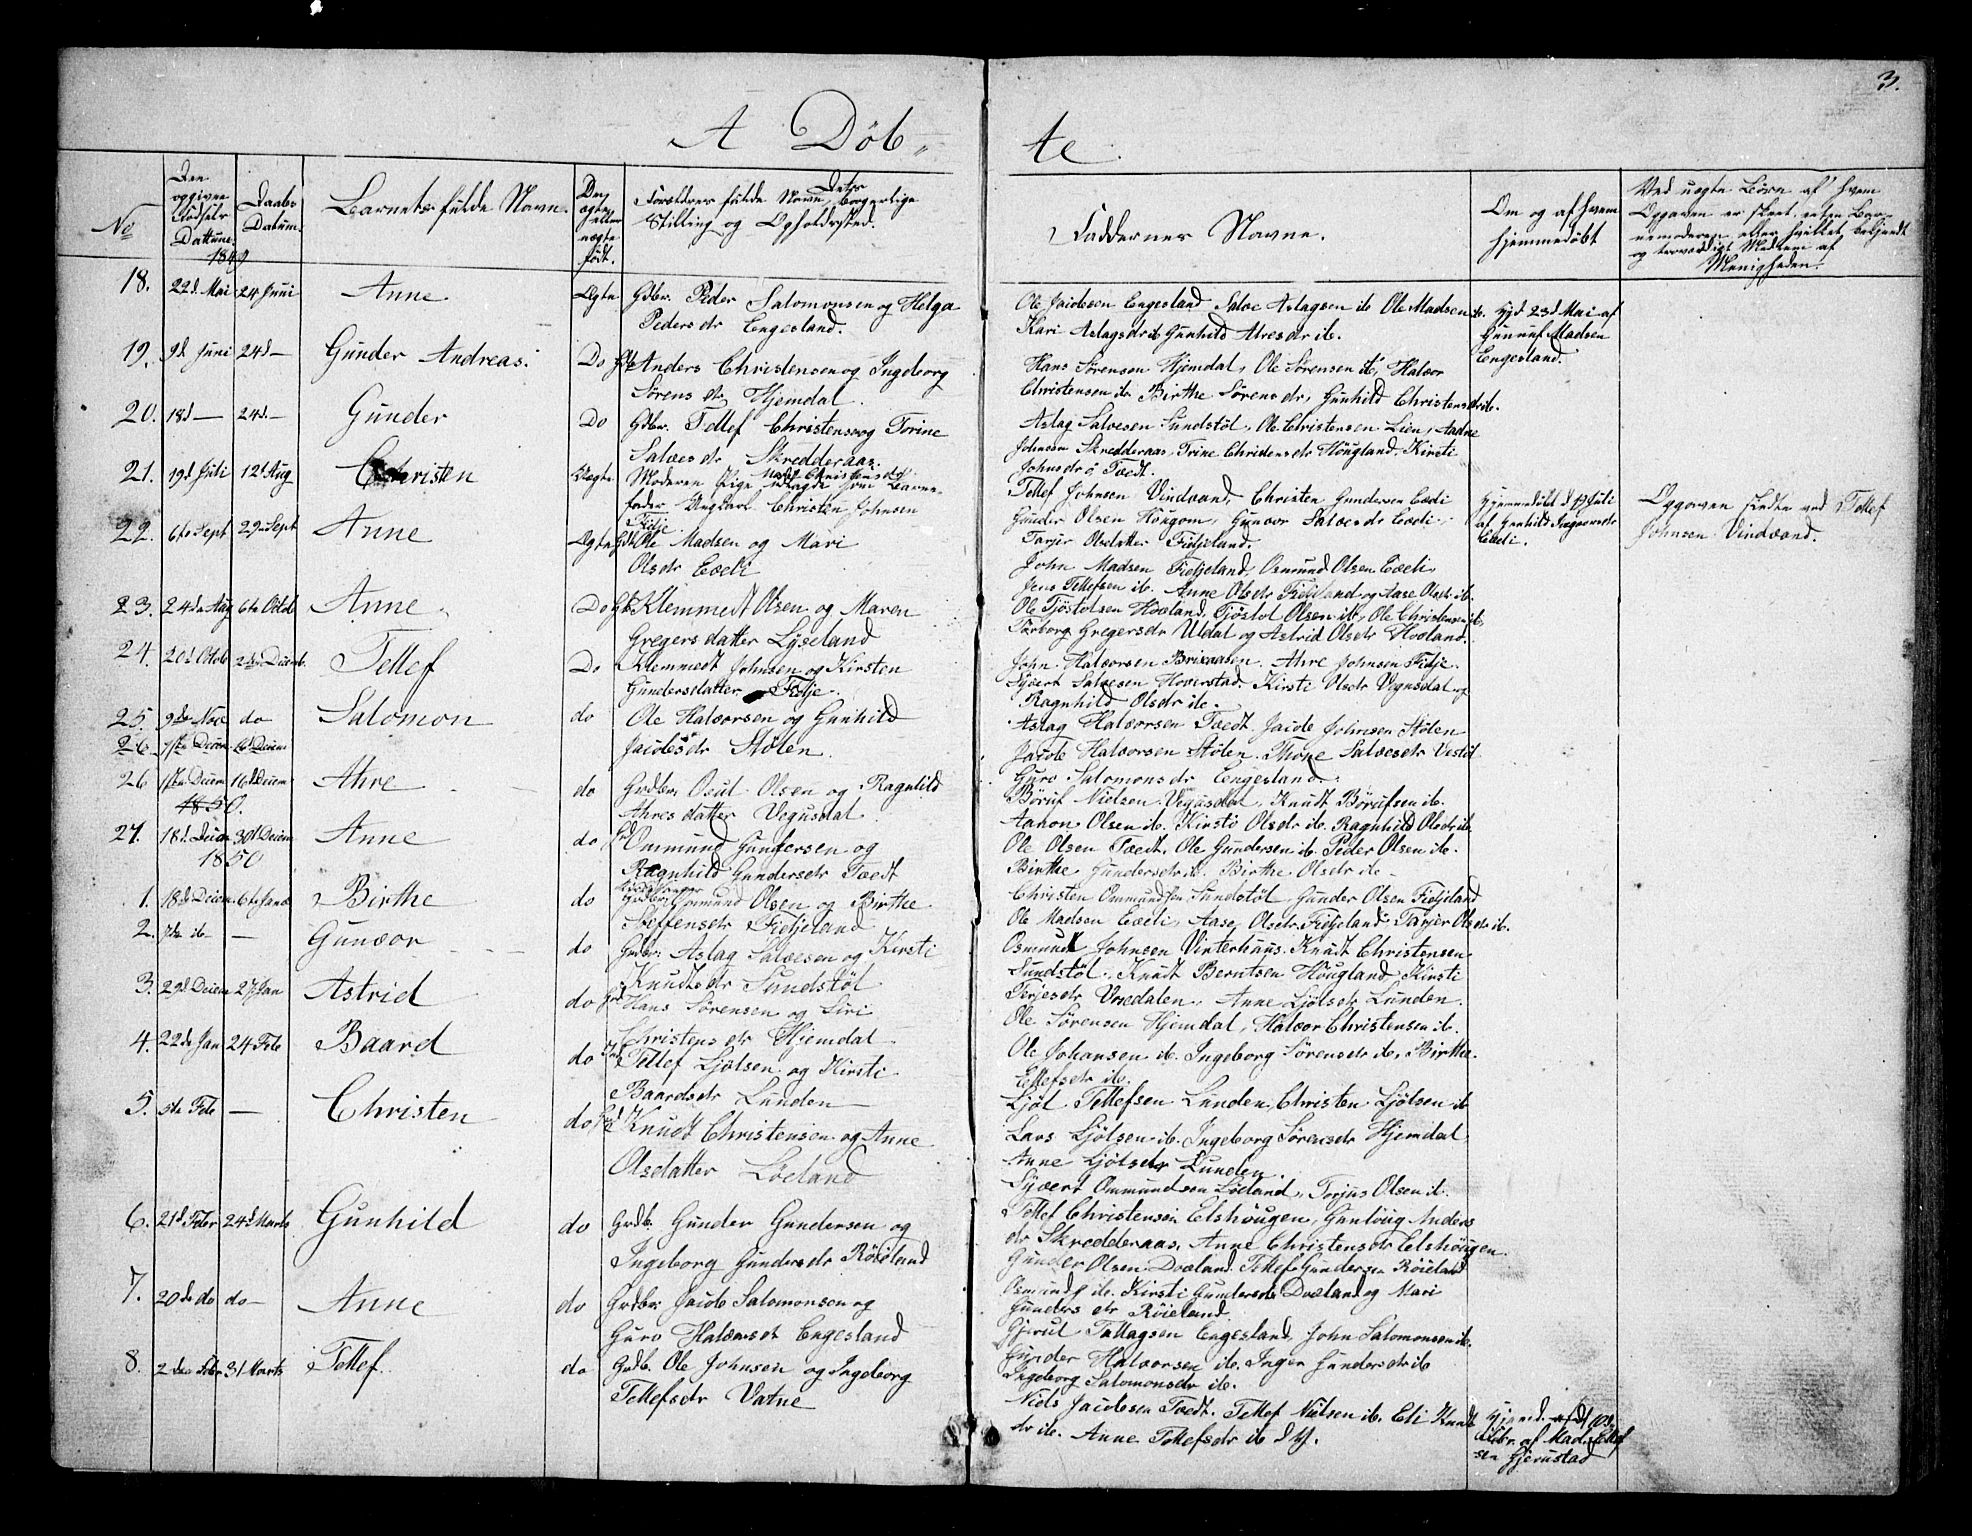 3.
A Døb-
te.
No
Den opgivne Fødsels Dattum.
Daabs Datum.
Barnets fulde Navn.
Om ægte eller uægte født.
Forældres fulde Navn, Deres borgerlige
Stilling og Opholdssted.
Faddernes Navne.
Om og af hvem
hjemmedøbt
Ved uægte Børn af hvem
Opgaven er skeet, enten Bar-
nemoderen eller hvilket bekjendt
og troværdigt Medlem af
Menigheden.
1849
18. 22d Mai 24 Juni Anne Ægte Gdbr. Peder Salomonsen og Helga
Pedersdr Engesland.
Ole Jacobsen Engesland Salve Aslagsen ib Ole Madsen ib.
Kari Aslagsdr ib Gunhild Ahresdr ib.
Hjd 23d Mai af
Madsen
Engesland.
19. 9d Juni 24d — Gunder Andreas. Do Anders Christensen og Ingeborg
Sørensdr Hjemdal.
Hans Sørensen Hjemdal, Ole Sørensen ib, Halvor
Christensen ib Birthe Sørensdr, Gunhild Christensdr ib.
20. 18d — 24d — Gunder Do Gdbr. Tellef Christensen og Torine
Salvesdr Skredderaas.
Aslag Salvesen Sundstøl, Ole Christensen Lien, Aadne
Johnsen Skredderaas, Trine Christensdr Hougland, Kirsti
Johnsdr Tvedt.
21. 19d Juli 12d Aug Christen Uægte Moderen Pige
udlagde som Barne-
fader Ungkarl Christen Johnsen
Fidje
Tellef Johnsen Vindvand, Christen Gundersen Eveli
Gunder Olsen Hougom, Gunvor Salvesdr Eveli,
Tarjer Olsdatter Fidjeland.
Hjemmedøbt d 19 Juli
af Gunhild
Eveli.
Opgaven skedte ved Tellef
Johnsen Vindvand.
22. 6te Sept 29 Sept Anne Ægte Gdb. Ole Madsen og Mari
Olsdr Eveli
John Madsen Fidjeland, Osmund Olsen Eveli,
Jens Tellefsen ib. Anne Olsdr Fidjeland og Aase Olsdr ib.
23. 24de Aug 6te Octob Anne Do Gb. Klemmedt Olsen og Maren
Gregersdatter Lyseland
Ole Tjøstolsen Hovland, Tjøstol Olsen ib, Ole Christensen ib.
Torborg Gregersdr Uldal og Astrid Olsdr Hovland.
24. 20d Octob 2den Decemb. Tellef Do Klemmedt Johnsen og Kirsten
Gundersdatter Fidje.
John Halvorsen Brixaasen. Ahre Johnsen Fidje.
Syvert Salvesen Hoverstad. Kirsti Olsdr Vegusdal og
Ragnhild Olsdr ib.
25. 9de Nov do Salomon do Ole Halvorsen og Gunhild
Jacobsdr Stølen.
Aslag Halvorsen Tvedt, Jacob Johnsen Stølen
Jacob Halvorsen Stølen. Thone Salvesdr Vestøl
Guro Salomonsdr Engesland.
26. 1ste Decem 16d Decem
26 1ste Decem 16d Decem Ahre do Grdbr. Osul Olsen og Ragnild
Ahresdatter Vegusdal
Børuf Nielsen Vegusdal, Knudt Børufsen ib.
Aanon Olsen ib. Kirsti Olsdr ib. Ragnhild Olsdr ib
1850.
27. 18d. Decem 30d Decem Anne do Gd Ommund Gundersen og
Ragnhild Gundersdr Tvedt
Ole Olsen Tvedt, Ole Gundersen ib. Peder Olsen ib.
Birthe Gundersdr ib. Birthe Olsdr ib
1850
1. 18d Decem. 6te Janv Birthe do Osmund Olsen og Birthe
Steffensdr Fidjeland
Christen Ommundsen Sundstøl, Gunder Olsen Fidjeland
Ole Madsen Eveli, Aase Olsdr. Fidjeland. Tarjer Olsdr ib.
2. ib — — Gunvor do Grdbr: Aslag Salvesen og Kirsti
Knudtsdr Sundstøl
Osmund Johnsen Vinterhuus. Knudt Christensen
Sundstøl, Knudt Berntsen Hougland Kirsti
Terjesdr Vredalen, Anne Ljølsdr Lunden.
3. 29d Decem 27 Jan Astrid do Hans Sørensen og Siri
Christensdr Hjemdal
Ole Sørensen Hjemdal, Halvor Christensen ib.
Ole Johansen ib. Ingeborg Sørensdr ib, Birthe
Tellefsdr ib.
4. 22de Jan 24 Feb Baard do Tellef Ljølsen og Kirsti
Baardsdr Lunden
Ljøl Tellefsen Lunden, Christen Ljølsen ib
Lars Ljølsen ib. Ingeborg Sørensdr Hjemdal
Anne Ljølsdr Lunden.
5. 5te Feb — Christen do Knudt Christensen og Anne
Olsdatter Løvland
Syvert Ommundsen Løvland, Torjus Olsen ib.
Tellef Christensen Elshougen, Gunloug Anders
dr Skredderaas, Anne Christensdr Elshougen.
6. 21d Febr 24d Marts Gunhild do Grdb. Gunder Gundersen og
Ingeborg Gundersdr Røieland
Gunder Olsen Dovland, Tellef Gundersen Røieland
Osmund ib. Kirsti Gundersdr Dovland og Mari
Gundersdr Røieland.
7. 20de do do — Anne do Grdbr: Jacob Salomonsen og
Guro Halvorsdr Engesland
Gjerul Tallagsen Engesland, John Salomonsen ib.
Gunder Halvorsen ib. Inger Gundersdr ib
Ingeborg Salomonsdr ib.
8. 2den Febr 31 Marts Tellef do Grdb. Ole Johnsen og Ingeborg
Tellefsdr Vatne
Niels Jacobsen Tvedt. Tellef Nielsen ib. Eli Knudts
dr ib. Anne Tellefsdr ib
Hjemd. af
Febr. af Mad. Tellef
sen Gjerustad